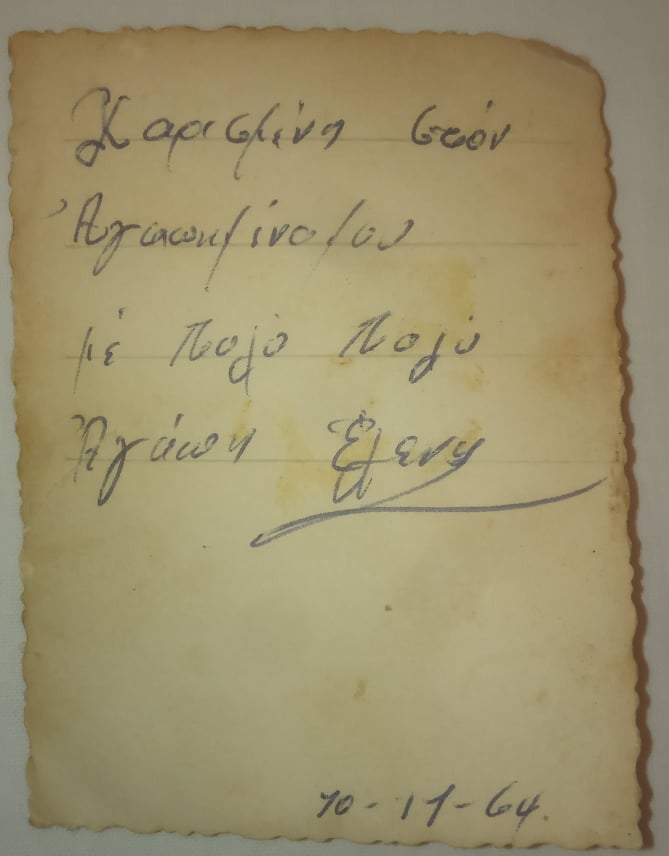 Χαρισμένη στόν
Ἀγαπημένο μου
μέ Πολύ Πολύ
Ἀγάπη Ἑλένη
10-11-64.